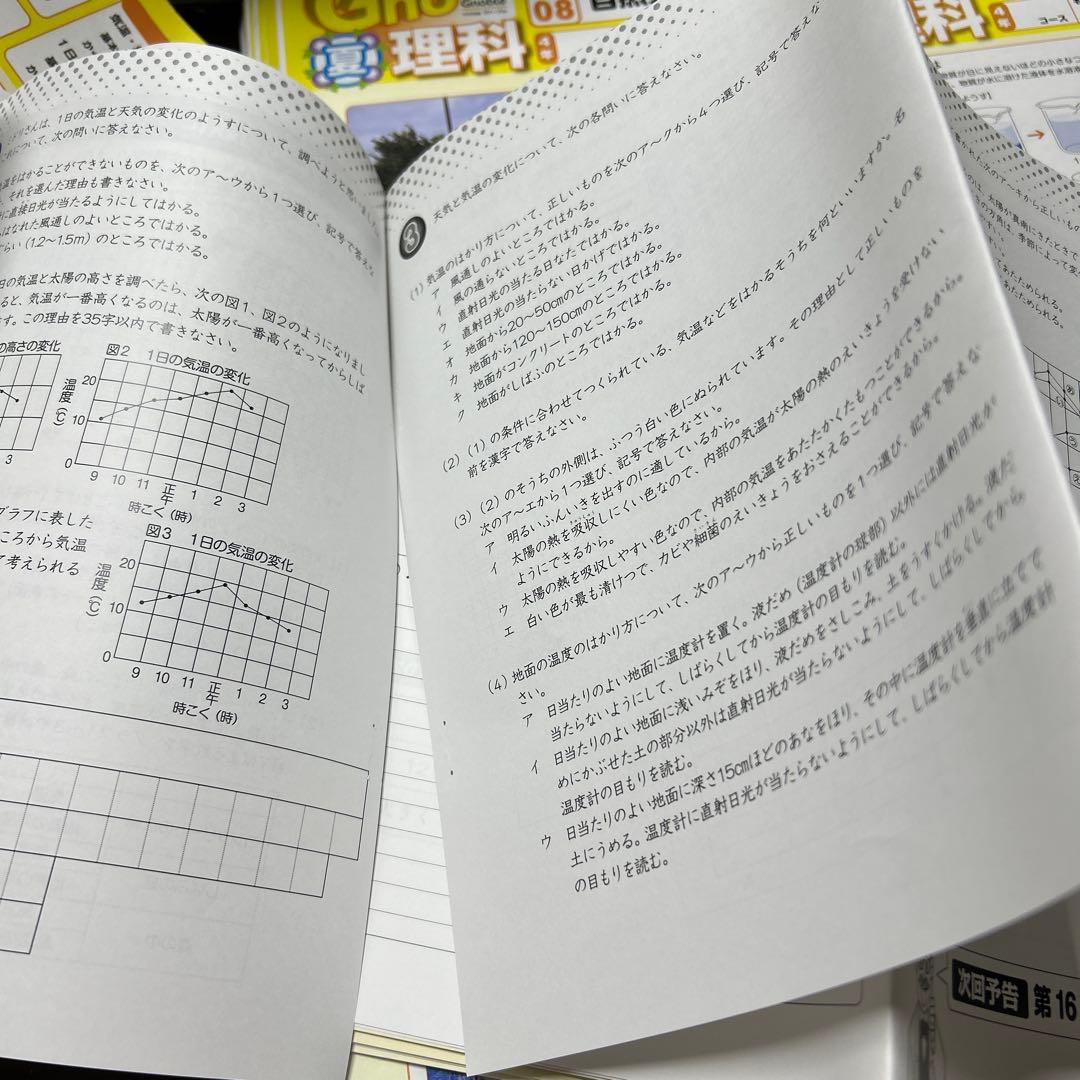 Gno
08
理科
4年
コース
1日の気温と天気の変化のようすについて、調べようと
次の問いに答えなさい。
をはかることができないものを、次のア～ウから1つ選び、記号で答え
それを選んだ理由も書きなさい。
に直接日光が当たるようにしてはかる。
はなれた風通しのよいところではかる。
らい（1.2～1.5m）のところではかる。
日の気温と太陽の高さを調べたら、次の図1、図2のようになりまし
ると、気温が一番高くなるのは、太陽が一番高くなってからしば
す。この理由を35字以内で書きなさい。
の高さの変化
3
図2　1日の気温の変化
温度（℃）
20
10
0
9 10 11 正午 1 2 3
時こく（時）
グラフに表した
ころから気温
て考えられる
図3　1日の気温の変化
温度（℃）
20
10
0
9 10 11 正午 1 2 3
時こく（時）
3　天気と気温の変化について、次の各問いに答えなさい。
（1）気温のはかり方について、正しいものを次のア～クから4つ選び、記号で答えな
ア　風通しのよいところではかる。
イ　風の通らないところではかる。
ウ　直射日光の当たる日なたではかる。
エ　直射日光の当たらない日かげではかる。
オ　地面から20～50cmのところではかる。
カ　地面から120～150cmのところではかる。
キ　地面がコンクリートのところではかる。
ク　地面がしばふのところではかる。
（2）（1）の条件に合わせてつくられている、気温などをはかるそうちを何といいますか。名
前を漢字で答えなさい。
（3）（2）のそうちの外側は、ふつう白い色にぬられています。その理由として正しいものを
次のア～エから1つ選び、記号で答えなさい。
ア　明るいふんいきを出すのに適しているから。
イ　太陽の熱を吸収しにくい色なので、内部の気温が太陽の熱のえいきょうを受けない
ようにできるから。
ウ　太陽の熱を吸収しやすい色なので、内部の気温をあたたかくたもつことができるから。
エ　白い色が最も清けつで、カビや細菌のえいきょうをおさえることができるから。
（4）地面の温度のはかり方について、次のア～ウから正しいものを1つ選び、記号で答えな
さい。
ア　日当たりのよい地面に温度計を置く。液だめ（温度計の球部）以外には直射日光が
当たらないようにして、しばらくしてから温度計の目もりを読む。
イ　日当たりのよい地面に浅いみぞをほり、液だめをさしこみ、土をうすくかける。液だ
めにかぶせた土の部分以外は直射日光が当たらないようにして、しばらくしてから
温度計の目もりを読む。
ウ　日当たりのよい地面に深さ15cmほどのあなをほり、その中に温度計を垂直に立てて
土にうめる。温度計に直射日光が当たらないようにして、しばらくしてから温度計
の目もりを読む。
理科
4年
物質が水に溶けた液体を水溶
次回予告　第16